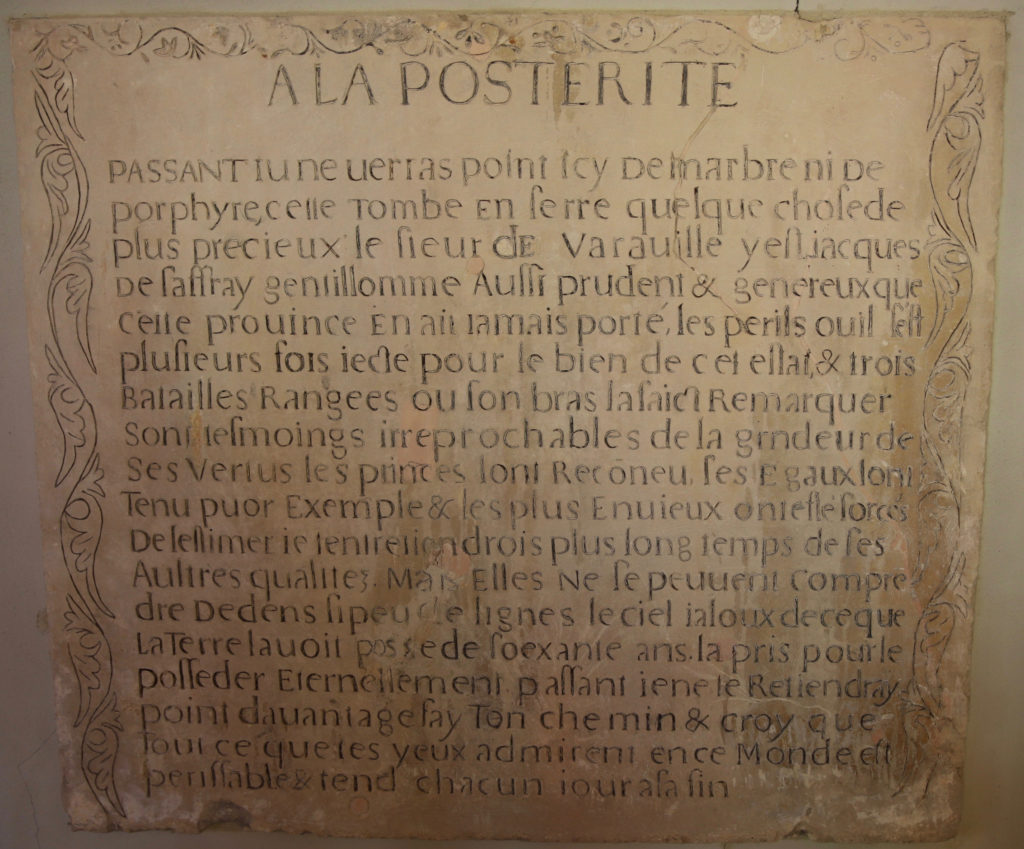 A LA POSTERITE
PASSANT tu ne uerras point Icy De marbre ni De
porphyre, cette Tombe En ſerre quelque choſe de
plus precieux le ſieur dE Varauille y eſt jacques
De ſaffray gentillomme Auſſi prudent & genereux que
cette prouince En ait Iamais porté, les perils ou il ſeſt
pluſieurs fois iecte pour le bien de cet eſtat, & trois
Batailles Rangees ou ſon bras la faict Remarquer
Sont teſmoings irreprochables de la grndeur de
Ses Vertus les princes lont Recōneu, ſes Egaux lont
Tenu puor Exemple & les plus Enuieux ont eſté forcés
De leſtimer ie tentretiendrois plus long temps de ſes
Aultres qualites. Mais Elles Ne ſe peuuent Compre
dre Dedens ſi peu de lignes le ciel ialoux de ce que
La Terre lauoit possede ſoexante ans. la pris pour le
poſſeder Eternellement paſſant ie ne te Retiendray
point dauantage fay Ton chemin & croy que
Tout ce que tes yeux admirent en ce Monde eſt
periſſable & tend chacun iour a ſa fin